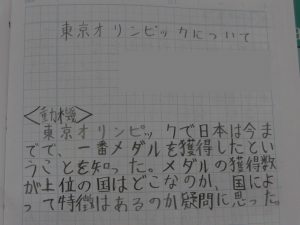 東京オリンピックについて
<動機>
東京オリンピックで日本は今ま
でで、一番メダルを獲得したとい
うことを知った。メダルの獲得数
が上位の国はどこなのか、国によ
って特徴はあるのか疑問に思った。